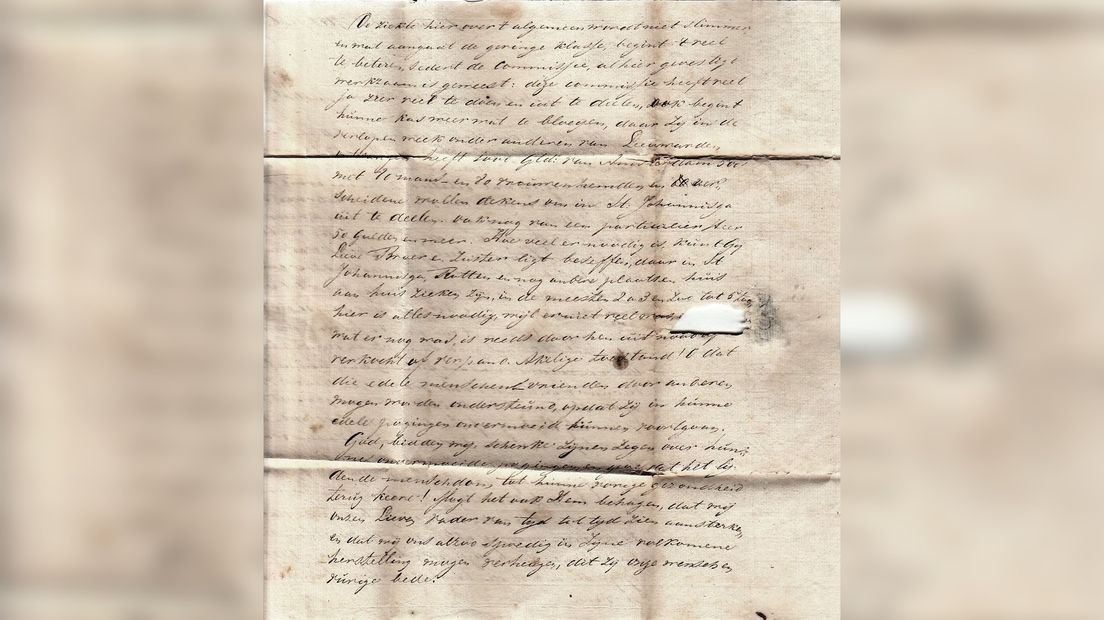 De ziekte hier over t algemeen wordt niet slimmer
en wat aangaat de geringe klasse, begint t veel
te beteren sedert de Commissie, alhier gevestigd
werkzaam is geweest: deze commissie heeft veel
ja zeer veel te doen en uit te deelen, ook begint
hunne kas meer wat te bloeijen, daar zij in de
verlopen week onder anderen van Leeuwarden
heeft Gld: van Amsterdam 500
met 40 mans- en 80 vrouwenhemden en ver
scheidene wollen dekens om in St. Johannisga
uit te deelen. ook nog van een particulier
50 gulden en meer. Hoe veel er noodig is kunt Gij
Lieve Broer en Zuster ligt beseffen, daar in St
Johannisga, Rotten, en nog andere plaatsen, huis
aan huis zieken zijn, in de meesten 2 a 3 en zoo tot 5 toe,
hier is alles noodig, wijl er niet veel was,
wat er nog was, is reeds door hen uit nood
verkocht of verpand. Akelige toestand! O dat
die edele menschenvrienden door anderen
mogen worden ondersteund, opdat zij in hunne
edele pogingen onvermoeid kunnen voortgaan.
God, bidden wij, schenke Zijnen Zegen over hun
onvermoeide pogingen en geve, dat het lij
dende menschdom, tot hunne vorige gezondheid
terug keere! Mogt het ook Hem behagen, dat wij
onzen Lieven Vader van tyd tot tyd zien aansterken
en dat wij ons alzoo spoedig in Zijne volkomene
herstelling mogen verheugen, dit zij onze wensch en
vurige bede.